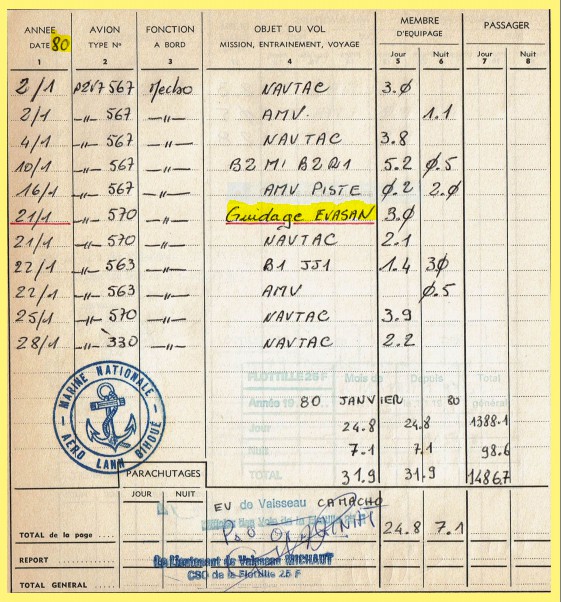 ANNEE AVION FONCTION OBJET DU VOL MEMBRE D'EQUIPAGE PASSAGER
DATE 80 TYPE N° A BORD MISSION, ENTRAINEMENT, VOYAGE Jour Nuit Jour Nuit
1 2 3 4 5 6 7 8
2/1 P2V7 567 Mecbo NAVTAC 3.0
2/1 -〃- 567 -〃- AMV. 1.1
4/1 -〃- 567 -〃- NAVTAC 3.8
10/1 -〃- 567 -〃- B2 M1 B2R1 5.2 0.5
16/1 -〃- 567 -〃- AMV PISTE 0.2 2.0
21/1 -〃- 570 -〃- Guidage EVASAN 3.0
21/1 -〃- 570 -〃- NAVTAC 2.1
22/1 -〃- 563 -〃- B1 JJ1 1.4 3.0
22/1 -〃- 563 -〃- AMV 0.5
25/1 -〃- 570 -〃- NAVTAC 3.9
28/1 -〃- 330 -〃- NAVTAC 2.2
MARINE NATIONALE
AERO LANN BIHOUÉ
FLOTTILLE 25F Mois de Depuis Total
Année 19 80 JANVIER 80 général
Jour 24.8 24.8 1388.1
Nuit 7.1 7.1 98.6
TOTAL 31.9 31.9 1486.7
PARACHUTAGES
JOUR NUIT
EV de Vaisseau CAMACHO
des Vols de la Flottille 25 F
P.O
TOTAL de la page 24.8 7.1
Le Lieutenant de Vaisseau MICHAUT
REPORT
CSO de la Flottille 25 F
TOTAL GENERAL